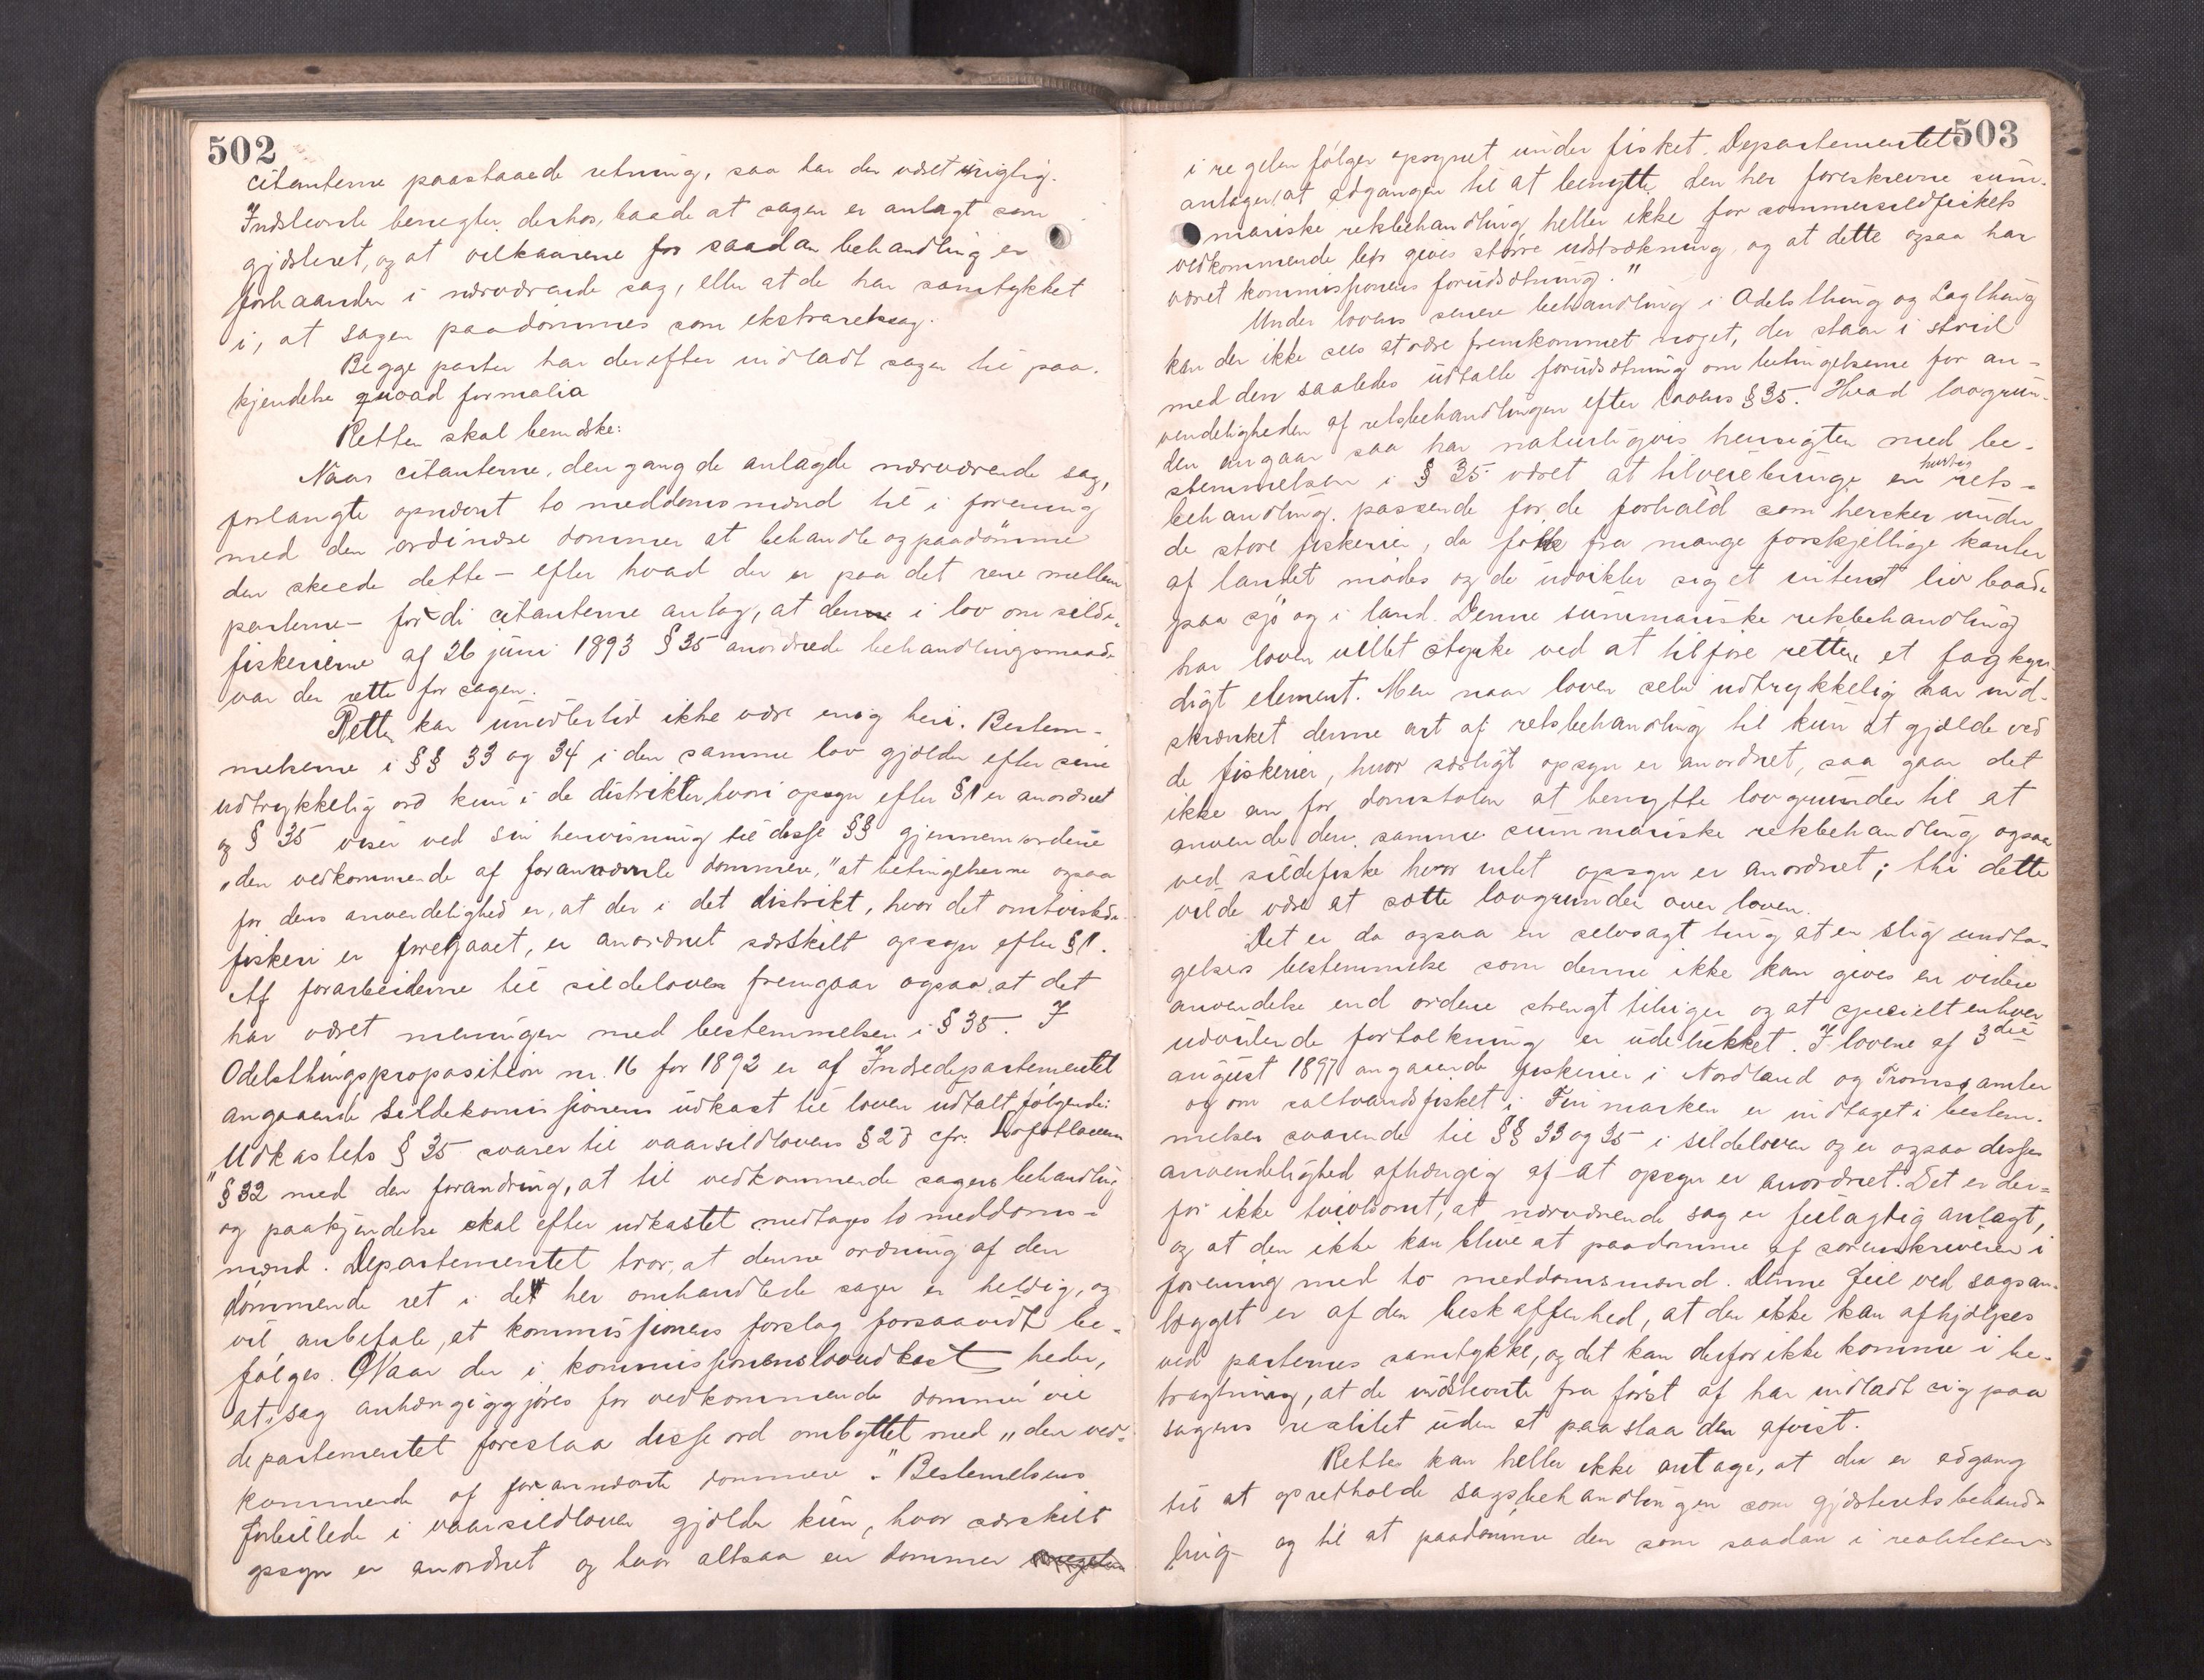 502
citanterne paastaaede retning, saa har den været urigtig.
Indstevnte benegter derhos, baade at sagen er anlagt som
gjæsteret, og at vilkaarene for saadan behandling er
forhaanden i nærværende sag, eller at de har samtykket
i, at sagen paadømmes som ekstraretssag.
Begge parter har derefter indladt sagen til paa-
kjendelse quoad formalia
Retten skal bemærke:
Naar citanterne, den gang de anlagde nærværende sag,
forlangte opnævnt to meddomsmænd til i forening
med den ordinære dommer at behandle og paadömme
den skeede dette – efter hvad der er paa det rene mellem
parterne – fordi citanterne antog, at den i lov om silde-
fiskerierne af 26 juni 1893 § 35 anordnede behandlingsmaade
var den rette for sagen.
Retten kan imidlertid ikke være enig heri. Bestem-
melserne i §§ 33 og 34 i den samme lov gjælder efter sine
udtrykkelig ord kun i de distrikter, hvori opsyn efter § 1 er anordnet
og § 35 viser ved sin henvisning til disse §§ gjennem ordene
„den vedkommende af forannævnte dommere," at betingelserne ogsaa
for dens anvendelighed er, at der i det distrikt, hvor det omtvistede
fiskeri er foregaaet, er anordnet særskilt opsyn efter § 1.
Af forarbeiderne til sildeloven fremgaar ogsaa, at det
har været meningen med bestemmelsen i § 35. I
Odelsthingsproposition nr. 16 for 1892 er af Indredepartementet
angaaende Sildekomissionens udkast til loven udtalt følgende:
Udkastets § 35 svarer til vaarsildlovens § 28 cfr. Lofotlovens
"§ 32 med den forandring, at til vedkommende sagers behandling
og paakjendelse skal efter udkastet medtages to meddoms-
mænd. Departementet tror, at denne ordning af den
dömmende ret i det her omhandlede sager er heldig, og
vil anbefale, at kommissionens forslag forsaavidt be-
følges. Naar der i kommissionens lovudkast heder,
at sag anhængiggjøres for vedkommende dommer vil
departementet foreslaa disse ord ombyttet med „den ved-
kommende af forannævnte dommere." Bestemelsens
forbillede i vaarsildloven gjælder kun, hvor særskilt
opsyn er anordnet og hvor altsaa en dommer
503
i regelen følger opsynet under fisket. Departementet
antager, at adgangen til at benytte den her foreskrevne sum-
mariske retsbehandling heller ikke for sommersildfiskets
vedkommende bør gives större udstrækning og at dette ogsaa har
været kommissionens forudsætning."
Under lovens senere behandling i Odelsthing og Lagthing
kan der ikke sees at være fremkommet noget, der staar i strid
med den saaledes udtalte forudsætning om betingelserne for an-
vendeligheden af retsbehandlingen efter lovens § 35. Hvad lovgrun-
den angaar saa har naturligvis hensigten med be-
stemmelsen i § 35 været at tilveiebringe en hurtig rets-
behandling, passende for de forhold som hersker under
de store fiskerier, da folk fra mange forskjellige kanter
af landet mødes og de udvikler sig et intenst liv baade
paa sjø og i land. Denne summariske retsbehandling
har loven villet styrke ved at tilføre retten et fagkyn-
digt element. Men naar loven selv udtrykkelig har ind-
skrænket denne art af retsbehandling til kun at gjælde ved
de fiskerier, hvor særligt opsyn er anordnet, saa gaar det
ikke an for domstolen at benytte lovgrunden til at
anvende den samme summariske retsbehandling ogsaa
ved sildefiske hvor intet opsyn er anordnet; thi dette
vilde være at sætte lovgrunden over loven.
Det er da ogsaa en selvsagt ting at en slig undta-
gelses bestemmelse som denne ikke kan gives en videre
anvendelse end ordene strengt tilsiger og at specielt enhver
udvidende fortolkning er udelukket. I lovene af 3die
august 1897 angaaende fiskerier i Nordland og Tromsø amter
og om saltvandsfisket i Finmarken er indtaget i bestem-
melser svarende til §§ 33 og 35 i sildeloven og er ogsaa disses
anvendelighed afhængig af at opsyn er anordnet. Det er der-
for ikke tvivlsomt, at nærværende sag er feilagtig anlagt,
og at den ikke kan blive at paadømme af sorenskriveren i
forening med to meddomsmænd. Denne feil ved sagsan-
lægget er af den beskaffenhed, at den ikke kan afhjælpes
ved parternes samtykke, og det kan derfor ikke komme i be-
tragtning, at de indstevnte fra først af har indladt sig paa
sagens realitet uden at paastaa den afvist.
Retten kan heller ikke antage, at der er adgang
til at opretholde sagsbehandlingen som gjæsteretsbehand-
ling og til at paadömme den som saadan i realiteten